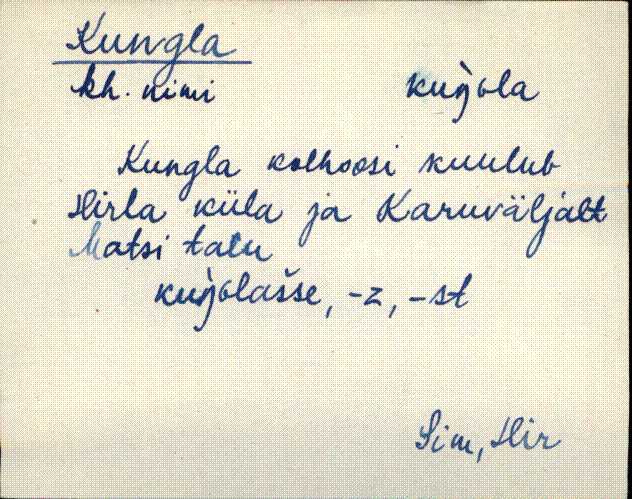 Kungla
kh. nimi kuŋ̀ola
Kungla kolhoosi kuulub
Hirla küla ja Karuväljalt
Matsi talu
kuŋ̀olašse, -z, -st
Sim, Hir